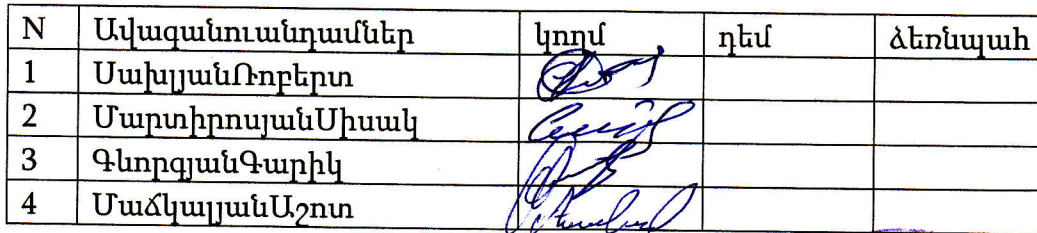 N Ավագանուանդամներ կողմ դեմ ձեռնպահ
1 ՍախլյանՌոբերտ
2 ՄարտիրոսյանՍիսակ
3 ԳևորգյանԳարիկ
4 ՄաճկալյանԱշոտ